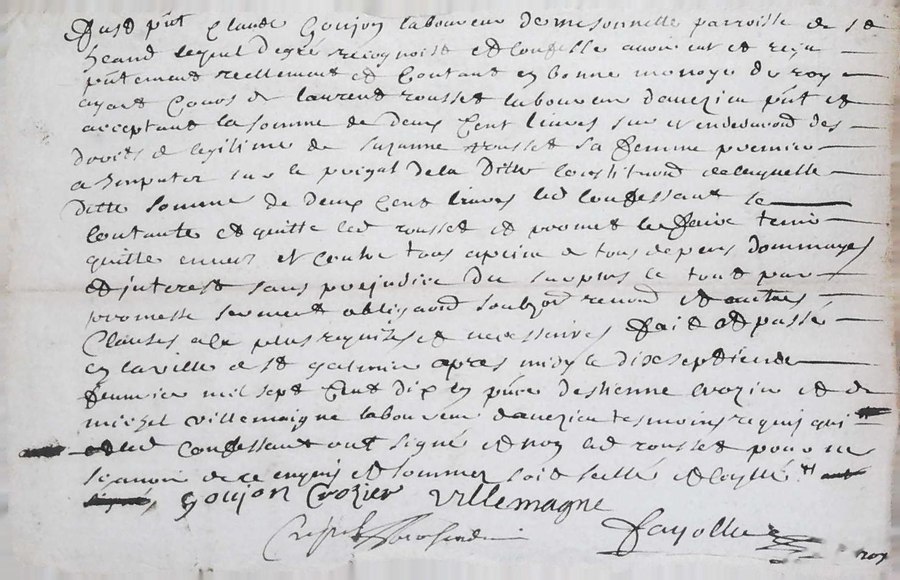 Fust pnt Claude Goujon laboureur de mesonnette parroisse de st
heand lequel de gre recognoist et confesse avoir eut et reçu
pntement reellement et contant en bonne monoye du roy
ayant cours de laurent rousset laboureur daveizieu pnt et
acceptant la somme de deux cent livres sur et des
droits de legitime de suzanne rousset sa femme premier
a imputer sur le de la ditte constitution de laquelle
ditte somme de deux cent livres led confessant se
contante et quitte led rousset et promet le faire tenir
quitte envers et contre tous a peine de tous depens dommages
et interest sans prejudice du surplus le tout par
promesse serment obligaond soubzon renond et autres
clauses a le plus requises et necessaires fait et passé
en la ville de st galmier apres midy le dixseptieme
feuvrier mil sept cent dix en pnce destienne crozier et de
michel villemaigne laboureur daveizieu tesmoins requis qui
et led confessant ont signé et non led rousset pour ne
sçavoir de ce enquis et sommé soit scellé et
Goujon Crozier Villemagne
Fayolle